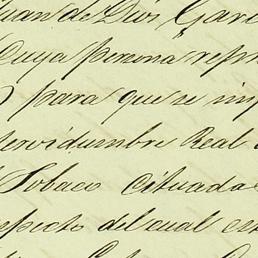 Juan de Dios Garc
Cuya persona repr
para que se im
servidumbre Real
Tobaco Situada
especto del cual est